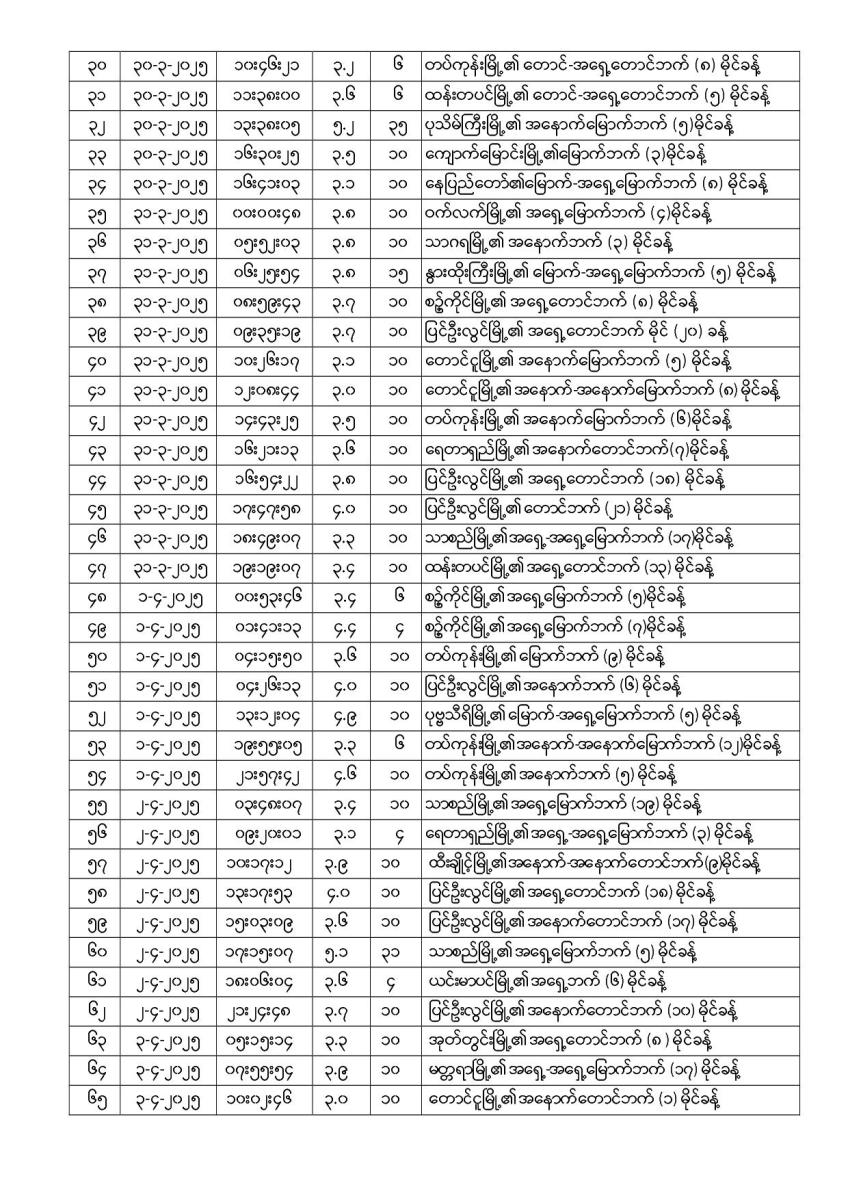 ၃၀ ၃၀-၃-၂၀၂၅ ၁၀း၄၆း၂၁ ၃.၂ ၆ တပ်ကုန်းမြို့၏ တောင်-အရှေ့တောင်ဘက် (၈) မိုင်ခန့်
၃၁ ၃၀-၃-၂၀၂၅ ၁၁း၃၈း၀၀ ၃.၆ ၆ ထန်းတပင်မြို့၏ တောင်-အရှေ့တောင်ဘက် (၅) မိုင်ခန့်
၃၂ ၃၀-၃-၂၀၂၅ ၁၃း၃၈း၀၅ ၅.၂ ၃၅ ပုသိမ်ကြီးမြို့၏ အနောက်မြောက်ဘက် (၅)မိုင်ခန့်
၃၃ ၃၀-၃-၂၀၂၅ ၁၆း၃၀း၂၅ ၃.၅ ၁၀ ကျောက်မြောင်းမြို့၏မြောက်ဘက် (၃)မိုင်ခန့်
၃၄ ၃၀-၃-၂၀၂၅ ၁၆း၄၁း၀၃ ၃.၁ ၁၀ နေပြည်တော်၏မြောက်-အရှေ့မြောက်ဘက် (၈) မိုင်ခန့်
၃၅ ၃၁-၃-၂၀၂၅ ၀၀း၀၀း၄၈ ၃.၈ ၁၀ ဝက်လက်မြို့၏ အရှေ့မြောက်ဘက် (၄)မိုင်ခန့်
၃၆ ၃၁-၃-၂၀၂၅ ၀၅း၅၂း၀၃ ၃.၈ ၁၀ သာဂရမြို့၏ အနောက်ဘက် (၃) မိုင်ခန့်
၃၇ ၃၁-၃-၂၀၂၅ ၀၆း၂၅း၅၄ ၃.၈ ၁၅ နွားထိုးကြီးမြို့၏ မြောက်-အရှေ့မြောက်ဘက် (၅) မိုင်ခန့်
၃၈ ၃၁-၃-၂၀၂၅ ၀၈း၅၉း၄၃ ၃.၇ ၁၀ စဉ့်ကိုင်မြို့၏ အရှေ့တောင်ဘက် (၈) မိုင်ခန့်
၃၉ ၃၁-၃-၂၀၂၅ ၀၉း၃၅း၁၉ ၃.၇ ၁၀ ပြင်ဦးလွင်မြို့၏ အရှေ့တောင်ဘက် မိုင် (၂၀) ခန့်
၄၀ ၃၁-၃-၂၀၂၅ ၁၀း၂၆း၁၇ ၃.၁ ၁၀ တောင်ငူမြို့၏ အနောက်မြောက်ဘက် (၅) မိုင်ခန့်
၄၁ ၃၁-၃-၂၀၂၅ ၁၂း၀၈း၄၄ ၃.၀ ၁၀ တောင်ငူမြို့၏အနောက်-အနောက်မြောက်ဘက် (၈) မိုင်ခန့်
၄၂ ၃၁-၃-၂၀၂၅ ၁၄း၄၃း၂၅ ၃.၅ ၁၀ တပ်ကုန်းမြို့၏ အနောက်မြောက်ဘက် (၆)မိုင်ခန့်
၄၃ ၃၁-၃-၂၀၂၅ ၁၆း၂၁း၁၃ ၃.၆ ၁၀ ရေတာရှည်မြို့၏ အနောက်တောင်ဘက်(၇)မိုင်ခန့်
၄၄ ၃၁-၃-၂၀၂၅ ၁၆း၅၄း၂၂ ၃.၈ ၁၀ ပြင်ဦးလွင်မြို့၏ အရှေ့တောင်ဘက် (၁၈) မိုင်ခန့်
၄၅ ၃၁-၃-၂၀၂၅ ၁၇း၄၇း၅၈ ၄.၀ ၁၀ ပြင်ဦးလွင်မြို့၏ တောင်ဘက် (၂၁) မိုင်ခန့်
၄၆ ၃၁-၃-၂၀၂၅ ၁၈း၄၉း၀၇ ၃.၃ ၁၀ သာစည်မြို့၏အရှေ့-အရှေ့မြောက်ဘက် (၁၇)မိုင်ခန့်
၄၇ ၃၁-၃-၂၀၂၅ ၁၉း၁၉း၀၇ ၃.၄ ၁၀ ထန်းတပင်မြို့၏ အရှေ့တောင်ဘက် (၁၃) မိုင်ခန့်
၄၈ ၁-၄-၂၀၂၅ ၀၀း၅၃း၄၆ ၃.၄ ၆ စဉ့်ကိုင်မြို့၏ အရှေ့မြောက်ဘက် (၅)မိုင်ခန့်
၄၉ ၁-၄-၂၀၂၅ ၀၁း၄၁း၁၃ ၄.၄ ၄ စဉ့်ကိုင်မြို့၏ အရှေ့မြောက်ဘက် (၇)မိုင်ခန့်
၅၀ ၁-၄-၂၀၂၅ ၀၄း၁၅း၅၀ ၃.၆ ၁၀ တပ်ကုန်းမြို့၏ မြောက်ဘက် (၉) မိုင်ခန့်
၅၁ ၁-၄-၂၀၂၅ ၀၄း၂၆း၁၃ ၄.၀ ၁၀ ပြင်ဦးလွင်မြို့၏ အနောက်ဘက် (၆) မိုင်ခန့်
၅၂ ၁-၄-၂၀၂၅ ၁၃း၁၂း၀၄ ၄.၉ ၁၀ ပုဗ္ဗသီရိမြို့၏ မြောက်-အရှေ့မြောက်ဘက် (၅) မိုင်ခန့်
၅၃ ၁-၄-၂၀၂၅ ၁၉း၅၅း၀၅ ၃.၃ ၆ တပ်ကုန်းမြို့၏အနောက်-အနောက်မြောက်ဘက် (၁၂)မိုင်ခန့်
၅၄ ၁-၄-၂၀၂၅ ၂၁း၅၇း၄၂ ၄.၆ ၁၀ တပ်ကုန်းမြို့၏ အနောက်ဘက် (၅) မိုင်ခန့်
၅၅ ၂-၄-၂၀၂၅ ၀၃း၄၈း၀၇ ၃.၄ ၁၀ သာစည်မြို့၏ အရှေ့မြောက်ဘက် (၁၉) မိုင်ခန့်
၅၆ ၂-၄-၂၀၂၅ ၀၉း၂၀း၀၁ ၃.၁ ၄ ရေတာရှည်မြို့၏ အရှေ့-အရှေ့မြောက်ဘက် (၃) မိုင်ခန့်
၅၇ ၂-၄-၂၀၂၅ ၁၀း၁၇း၁၂ ၃.၉ ၁၀ ထီးချိုင့်မြို့၏အနောက်-အနောက်တောင်ဘက်(၉)မိုင်ခန့်
၅၈ ၂-၄-၂၀၂၅ ၁၃း၁၇း၅၃ ၄.၀ ၁၀ ပြင်ဦးလွင်မြို့၏ အရှေ့တောင်ဘက် (၁၈) မိုင်ခန့်
၅၉ ၂-၄-၂၀၂၅ ၁၅း၀၃း၀၉ ၃.၆ ၁၀ ပြင်ဦးလွင်မြို့၏ အနောက်တောင်ဘက် (၁၇) မိုင်ခန့်
၆၀ ၂-၄-၂၀၂၅ ၁၇း၁၅း၀၇ ၅.၁ ၃၁ သာစည်မြို့၏ အရှေ့မြောက်ဘက် (၅) မိုင်ခန့်
၆၁ ၂-၄-၂၀၂၅ ၁၈း၀၆း၀၄ ၃.၆ ၄ ယင်းမာပင်မြို့၏ အရှေ့ဘက် (၆) မိုင်ခန့်
၆၂ ၂-၄-၂၀၂၅ ၂၁း၂၄း၄၈ ၃.၇ ၁၀ ပြင်ဦးလွင်မြို့၏ အနောက်တောင်ဘက် (၁၀) မိုင်ခန့်
၆၃ ၃-၄-၂၀၂၅ ၀၅း၁၅း၁၄ ၃.၃ ၁၀ အုတ်တွင်းမြို့၏ အရှေ့တောင်ဘက် (၈ ) မိုင်ခန့်
၆၄ ၃-၄-၂၀၂၅ ၀၇း၅၅း၅၄ ၃.၉ ၁၀ မတ္တရာမြို့၏ အရှေ့-အရှေ့မြောက်ဘက် (၁၇) မိုင်ခန့်
၆၅ ၃-၄-၂၀၂၅ ၁၀း၀၂း၄၆ ၃.၀ ၁၀ တောင်ငူမြို့၏အနောက်တောင်ဘက် (၁) မိုင်ခန့်